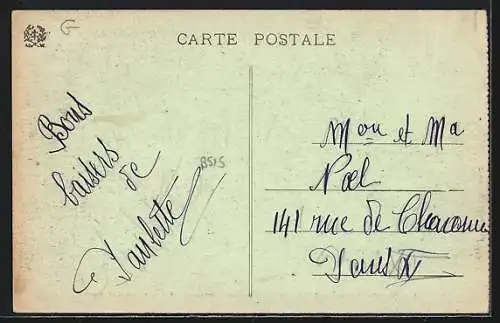 CARTE POSTALE
Bons
baisers
de
Paulette
BSIS
Mon et Ma
Noel
141 rue de Charonne
Paris X